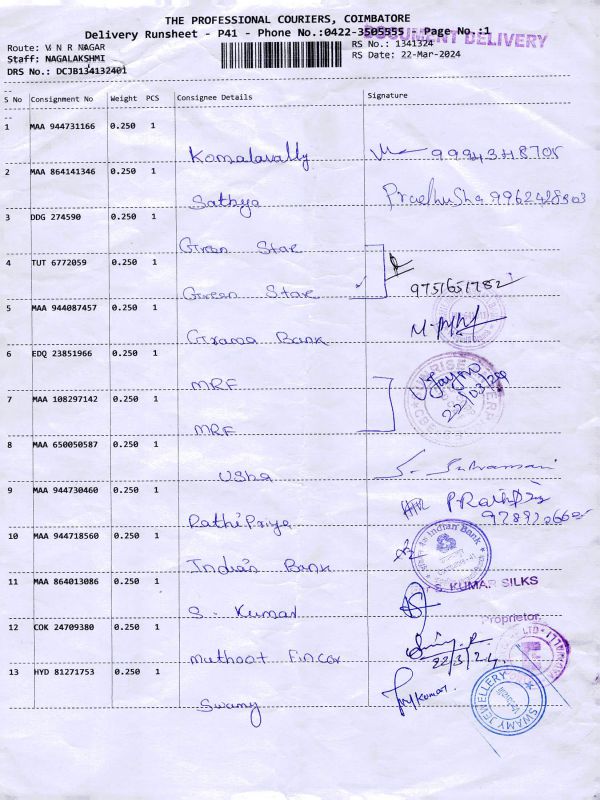 THE PROFESSIONAL COURIERS, COIMBATORE
Delivery Runsheet - P41 - Phone No.:0422-3505555 - Page No.:1
DOCUMENT DELIVERY
Route: V N R NAGAR RS No.: 1341324
Staff: NAGALAKSHMI RS Date: 22-Mar-2024
DRS No.: DCJB134132401
S No Consignment No Weight PCS Consignee Details Signature
1 MAA 944731166 0.250 1
Komalavally 9994348705
2 MAA 864141346 0.250 1
Sathya 9962428803
3 DDG 274590 0.250 1
Green Star
4 TUT 6772059 0.250 1
Green Star 9751651782
5 MAA 944087457 0.250 1
Grama Bank
6 EDQ 23851966 0.250 1
MRF 22/03/24
7 MAA 108297142 0.250 1
MRF
8 MAA 650050587 0.250 1
Usha
9 MAA 944730460 0.250 1
RathiPriya
10 MAA 944718560 0.250 1
Indian Bank
Indian Bank
11 MAA 864013086 0.250 1
S. KUMAR SILKS
S. Kumar
Proprietor
12 COK 24709380 0.250 1
muthoot Fincor 22/3/24
13 HYD 81271753 0.250 1
Swamy
SWAMY JEWELLERY